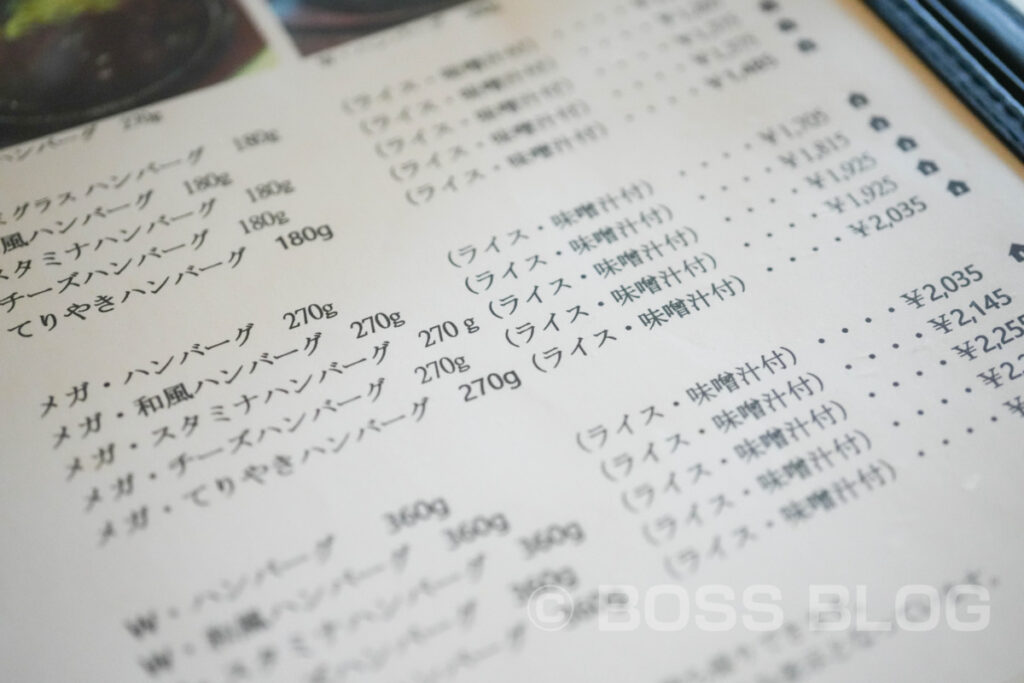 ハンバーグ
ミグラスハンバーグ 180g (ライス・味噌汁付)
風ハンバーグ 180g (ライス・味噌汁付)
スタミナハンバーグ 180g (ライス・味噌汁付)
チーズハンバーグ 180g (ライス・味噌汁付)
てりやきハンバーグ 180g (ライス・味噌汁付)・・・・・¥1,485
メガ・ハンバーグ 270g (ライス・味噌汁付)・・・・・¥1,705
メガ・和風ハンバーグ 270g (ライス・味噌汁付)・・・・・¥1,815
メガ・スタミナハンバーグ 270g (ライス・味噌汁付)・・・・・¥1,925
メガ・チーズハンバーグ 270g (ライス・味噌汁付)・・・・・¥1,925
メガ・てりやきハンバーグ 270g (ライス・味噌汁付)・・・・・¥2,035
W・ハンバーグ 360g (ライス・味噌汁付)・・・・¥2,035
W・和風ハンバーグ 360g (ライス・味噌汁付)・・・・・¥2,145
スタミナハンバーグ 360g (ライス・味噌汁付)・・・・・¥2,255
ズハンバーグ 360g (ライス・味噌汁付)・・・・・¥2,2
ハンバーグ 360g (ライス・味噌汁付)・・・・・¥
© BOSS BLOG